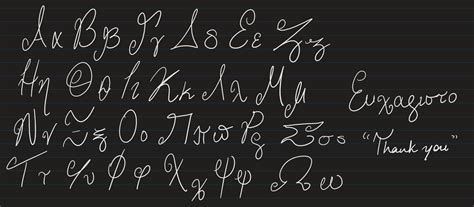 Αα Ββ Γγ Δδ Εε Ζζ
Ηη Θθ Ιι Κκ Λλ Μμ
Νν Ξξ Οο Ππϖ Ρρ Σσς
Ττ Υυ Φφ Χχ Ψψ Ωω
Ευχαριστο
"Thank you"